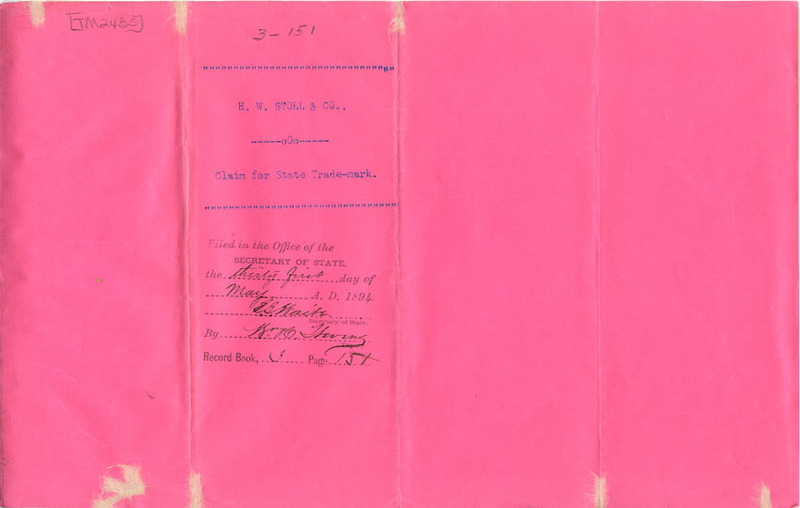 [TM2435]
3-151
""""""""""""""""""""""""""""""""""
H. W. STOLL & CO.,
-----oOo-----
Claim for State Trade-mark.
""""""""""""""""""""""""""""""""""
Filed in the Office of the
SECRETARY OF STATE,
the thirty first day of
May A. D. 1894
Waite
Secretary of State.
By
Record Book, 3 Page 151